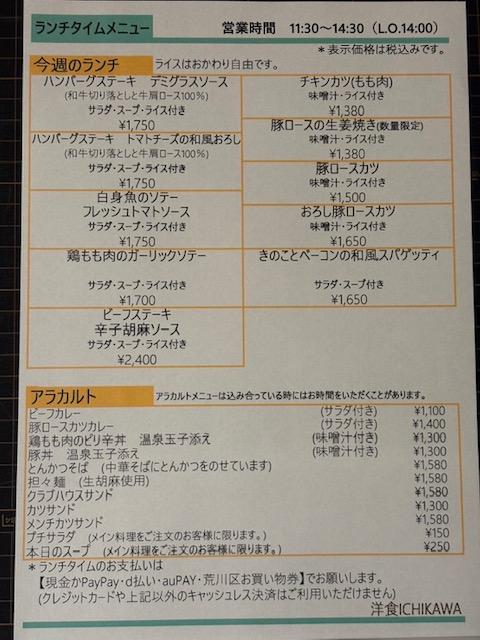 ランチタイムメニュー 営業時間 11:30～14:30（L.O.14:00）
＊表示価格は税込みです。
今週のランチ ライスはおかわり自由です。
ハンバーグステーキ デミグラスソース
(和牛切り落としと牛肩ロース100％)
サラダ・スープ・ライス付き
¥1,750
ハンバーグステーキ トマトチーズの和風おろし
(和牛切り落としと牛肩ロース100％)
サラダ・スープ・ライス付き
¥1,750
白身魚のソテー
フレッシュトマトソース
サラダ・スープ・ライス付き
¥1,750
鶏もも肉のガーリックソテー
サラダ・スープ・ライス付き
¥1,700
ビーフステーキ
辛子胡麻ソース
サラダ・スープ・ライス付き
¥2,400
チキンカツ(もも肉)
味噌汁・ライス付き
¥1,380
豚ロースの生姜焼き(数量限定)
味噌汁・ライス付き
¥1,380
豚ロースカツ
味噌汁・ライス付き
¥1,500
おろし豚ロースカツ
味噌汁・ライス付き
¥1,650
きのことベーコンの和風スパゲッティ
サラダ・スープ付き
¥1,650
アラカルト アラカルトメニューは込み合っている時にはお時間をいただくことがあります。
ビーフカレー (サラダ付き) ¥1,100
豚ロースカツカレー (サラダ付き) ¥1,400
鶏もも肉のピリ辛丼 温泉玉子添え (味噌汁付き) ¥1,300
豚丼 温泉玉子添え (味噌汁付き) ¥1,300
とんかつそば (中華そばにとんかつをのせています) ¥1,580
担々麺 (生胡麻使用) ¥1,580
クラブハウスサンド ¥1,580
カツサンド ¥1,300
メンチカツサンド ¥1,580
プチサラダ (メイン料理をご注文のお客様に限ります。) ¥150
本日のスープ (メイン料理をご注文のお客様に限ります。) ¥250
＊ランチタイムのお支払いは
【現金かPayPay・d払い・auPAY・荒川区お買い物券】でお願いします。
(クレジットカードや上記以外のキャッシュレス決済はご利用いただけません)
洋食ICHIKAWA